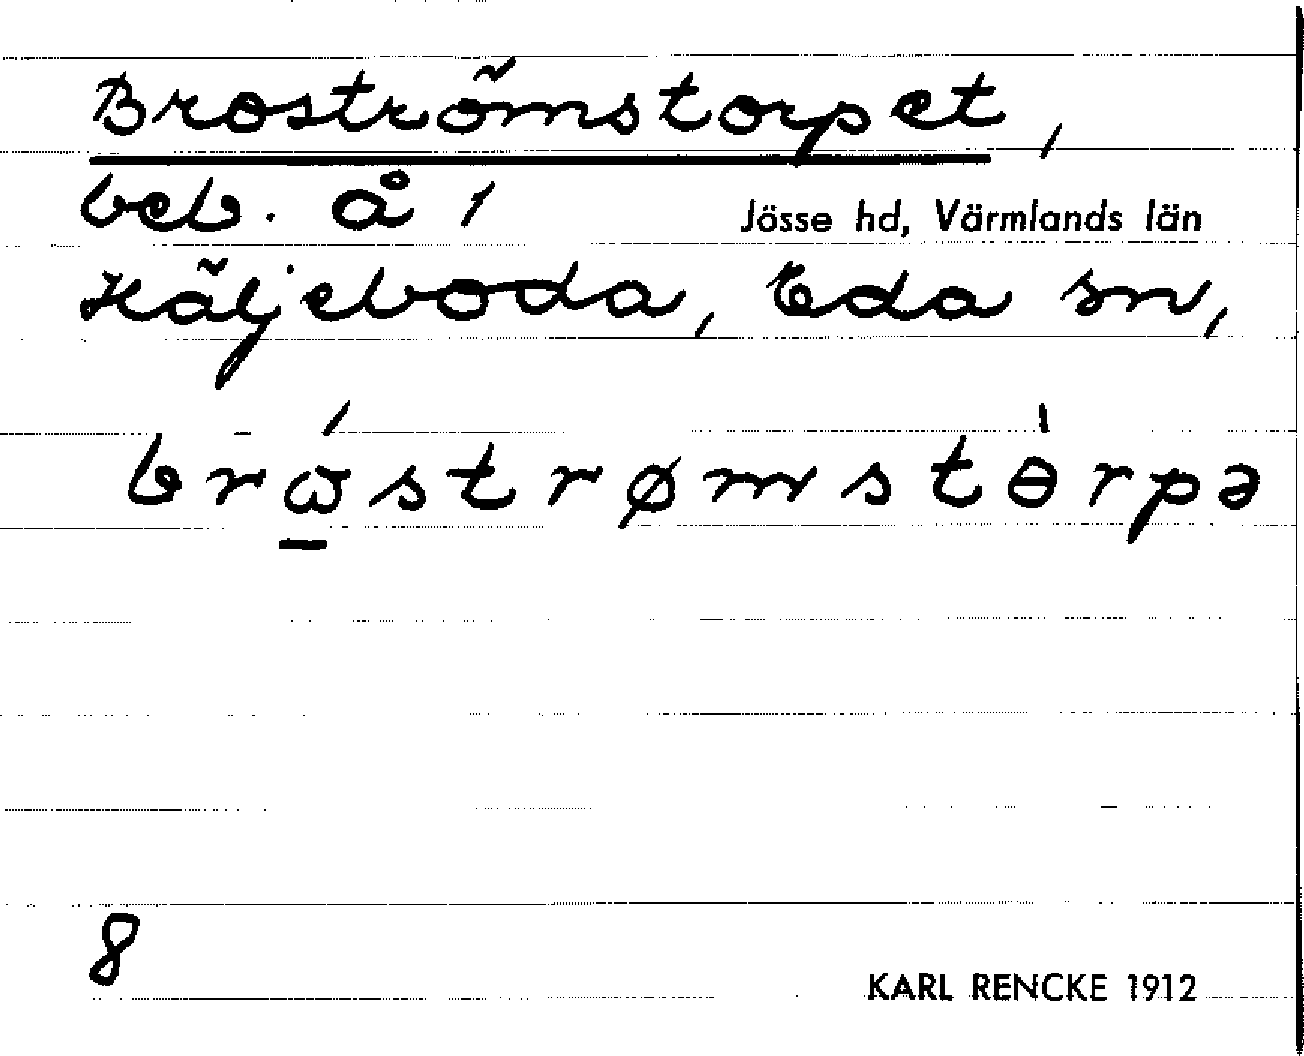 Broströmstorpet,
beb. å 1 Jösse hd, Värmlands län
Häljeboda, Eda sn,
brɷ̱́strømstɵ̀rpə
8
KARL RENCKE 1912